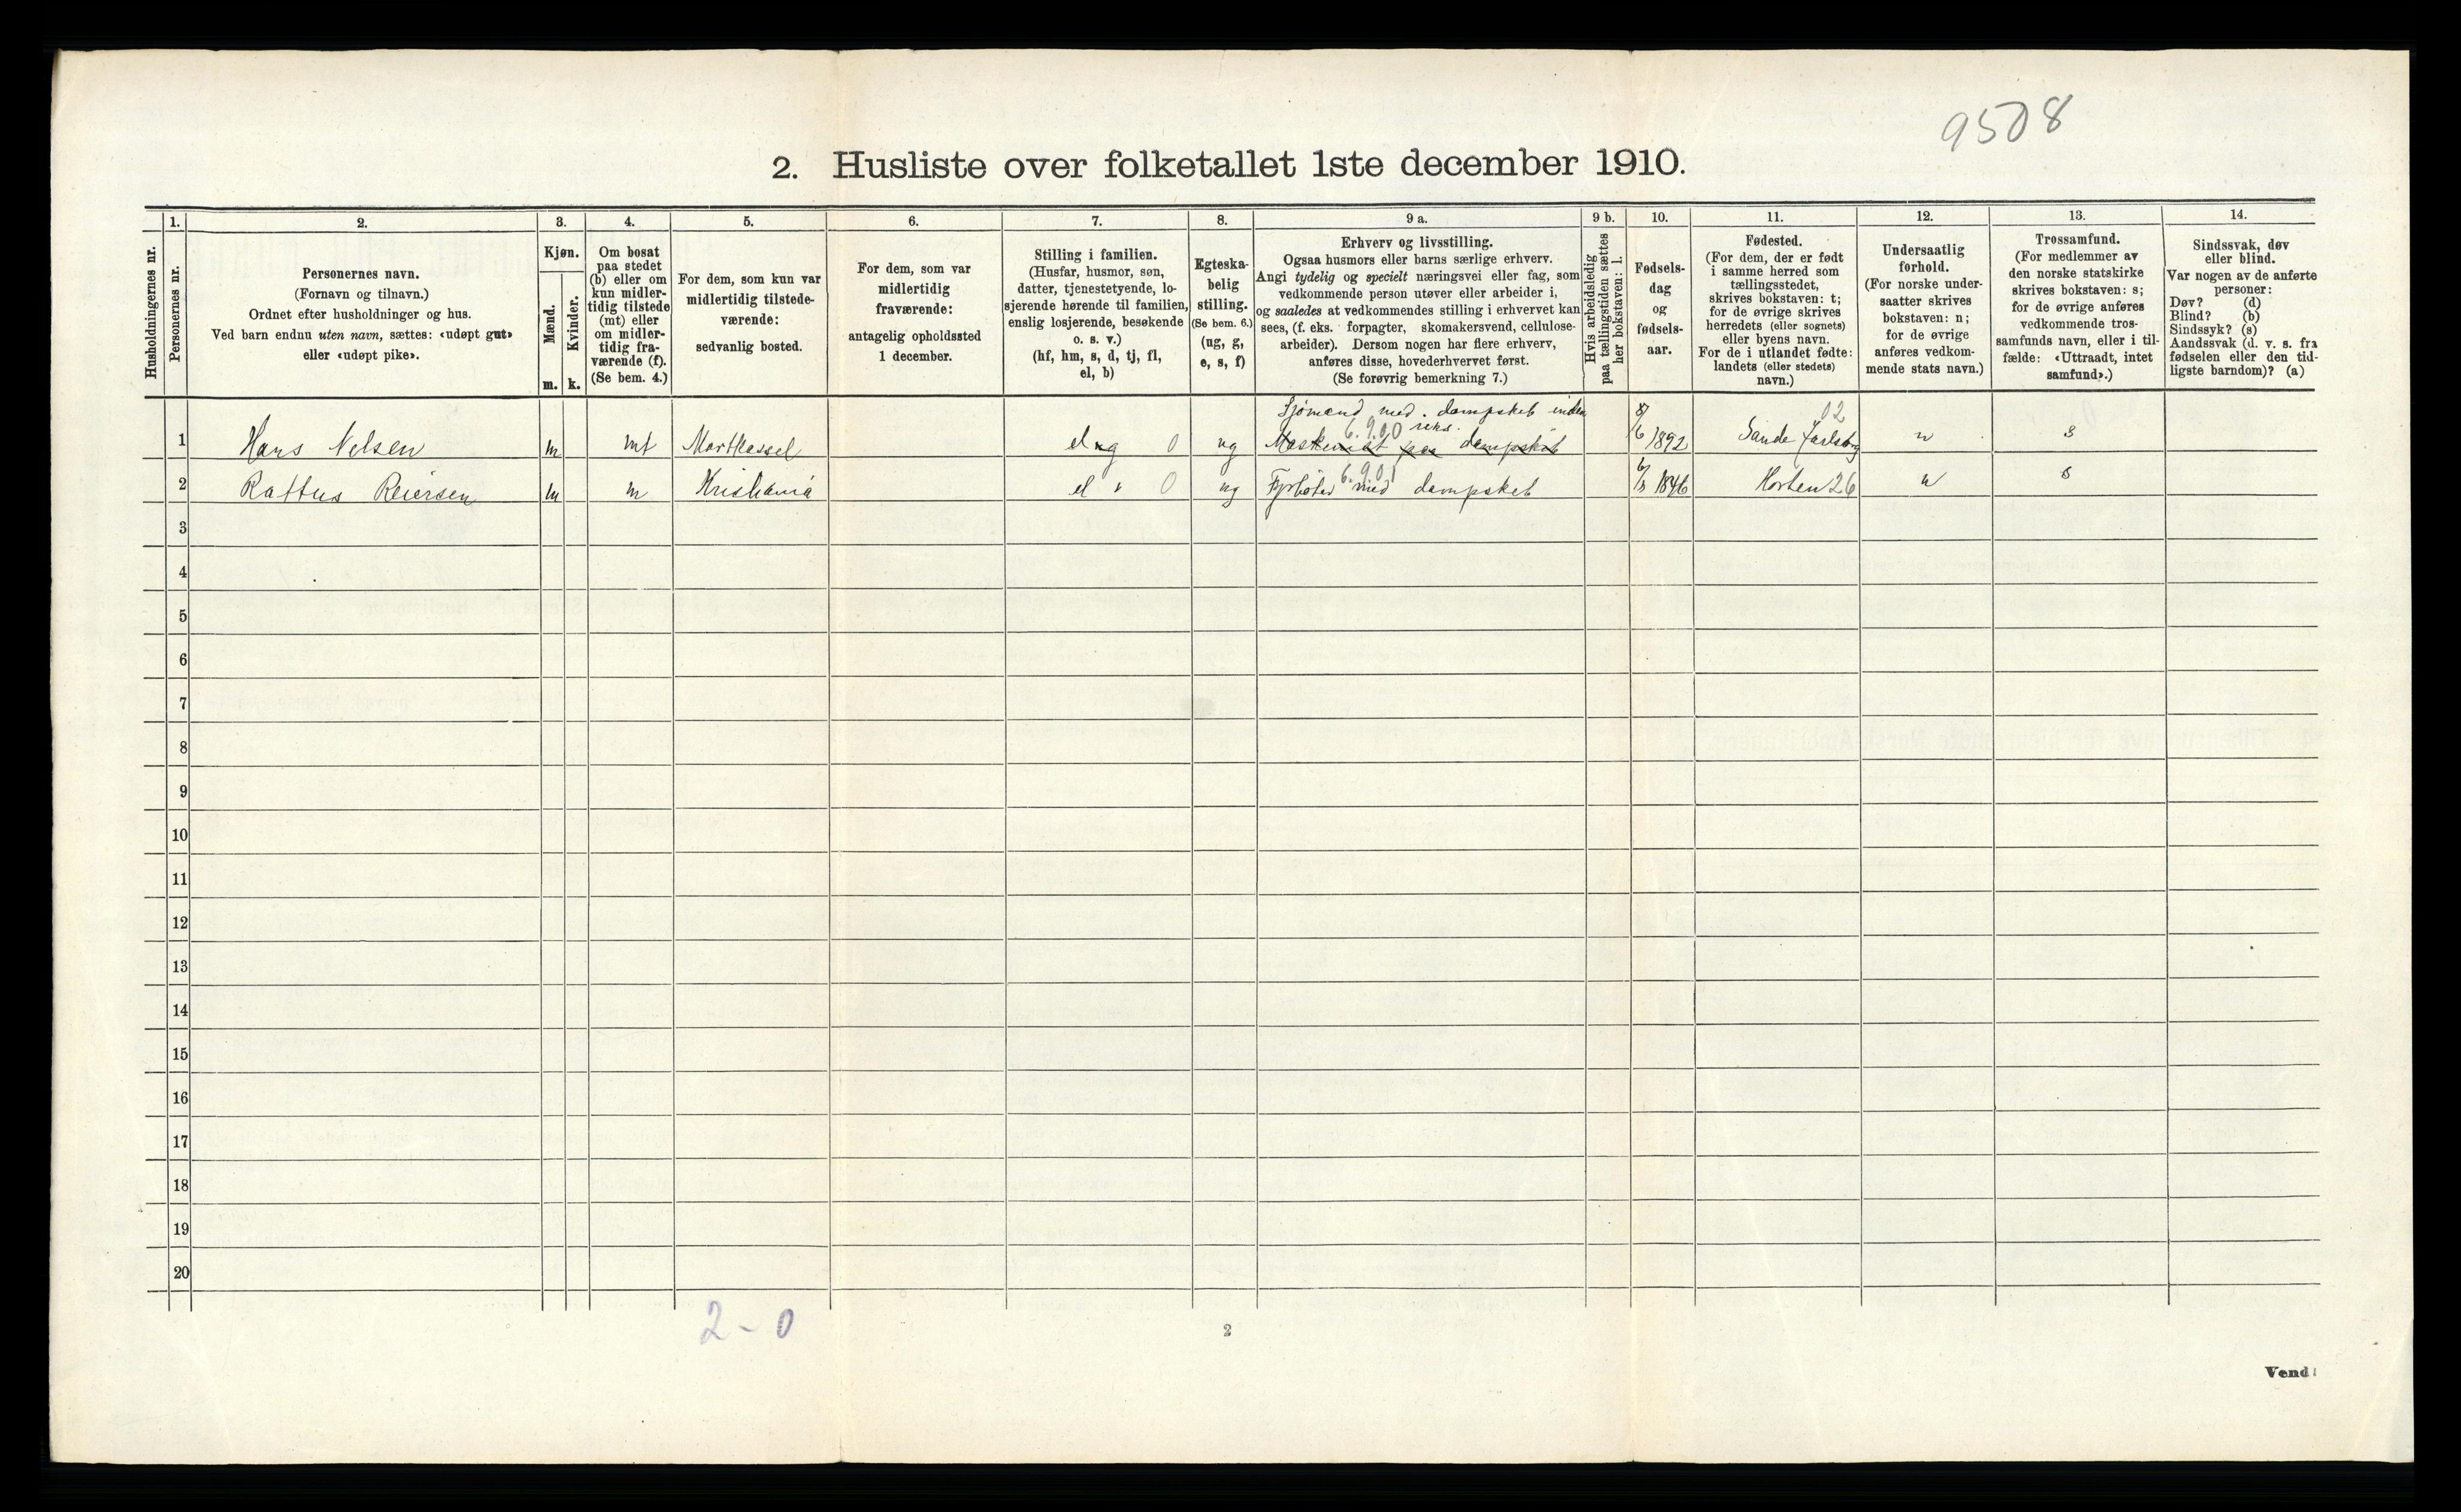 9508
2. Husliste over folketallet 1ste december 1910.
Husholdningernes nr.
1.
Personernes nr.
2.
Personernes navn.
(Fornavn og tilnavn.)
Ordnet efter husholdninger og hus.
Ved barn endnu uten navn, sættes: «udøpt gut»
eller «udøpt pike».
3.
Kjøn.
Mænd.
Kvinder.
m. k.
4.
Om bosat
paa stedet
(b) eller om
kun midler-
tidig tilstede
(mt) eller
om midler-
tidig fra-
værende (f).
(Se bem. 4.)
5.
For dem, som kun var
midlertidig tilstede-
værende:
sedvanlig bosted.
6.
For dem, som var
midlertidig
fraværende:
antagelig opholdssted
1 december.
7.
Stilling i familien.
(Husfar, husmor, søn,
datter, tjenestetyende, lo-
sjerende hørende til familien,
enslig losjerende, besøkende
o. s. v.)
(hf, hm, s, d, tj, fl,
el, b)
8.
Egteska-
belig
stilling.
(Se bem. 6.)
(ug, g,
e, s, f)
9 a.
Erhverv og livsstilling.
Ogsaa husmors eller barns særlige erhverv.
Angi tydelig og specielt næringsvei eller fag, som
vedkommende person utøver eller arbeider i,
og saaledes at vedkommendes stilling i erhvervet kan
sees, (f. eks. forpagter, skomakersvend, cellulose-
arbeider). Dersom nogen har flere erhverv,
anføres disse, hovederhvervet først.
(Se forøvrig bemerkning 7.)
9 b.
Hvis arbeidsledig
paa tællingstiden sættes
her bokstaven: l.
10.
Fødsels-
dag
og
fødsels-
aar.
11.
Fødested.
(For dem, der er født
i samme herred som
tællingsstedet,
skrives bokstaven: t;
for de øvrige skrives
herredets (eller sognets)
eller byens navn.
For de i utlandet fødte:
landets (eller stedets)
navn.)
12.
Undersaatlig
forhold.
(For norske under-
saatter skrives
bokstaven: n;
for de øvrige
anføres vedkom-
mende stats navn.)
13.
Trossamfund.
(For medlemmer av
den norske statskirke
skrives bokstaven: s;
for de øvrige anføres
vedkommende tros-
samfunds navn, eller i til-
fælde: «Uttraadt, intet
samfund».)
14.
Sindssvak, døv
eller blind.
Var nogen av de anførte
personer:
Døv? (d)
Blind? (b)
Sindssyk? (s)
Aandssvak (d. v. s. fra
fødselen eller den tid-
ligste barndom)? (a)
Sjømand med. dampskib inden 02
6.9.00 riks.
1 Hans Nelsen m mt el ug 0 ug Maskinist paa dampskib 8/6 1892 Sande Jarlsbg n s
6.901
2 Raftus Reiersen m m Kristiania el " 0 ug Fyrbøter med dampskib 1846 Horten 26 n s
3
4
5
6
7
8
9
10
11
12
13
14
15
16
17
18
19
20
2 - 0
2
Vend!